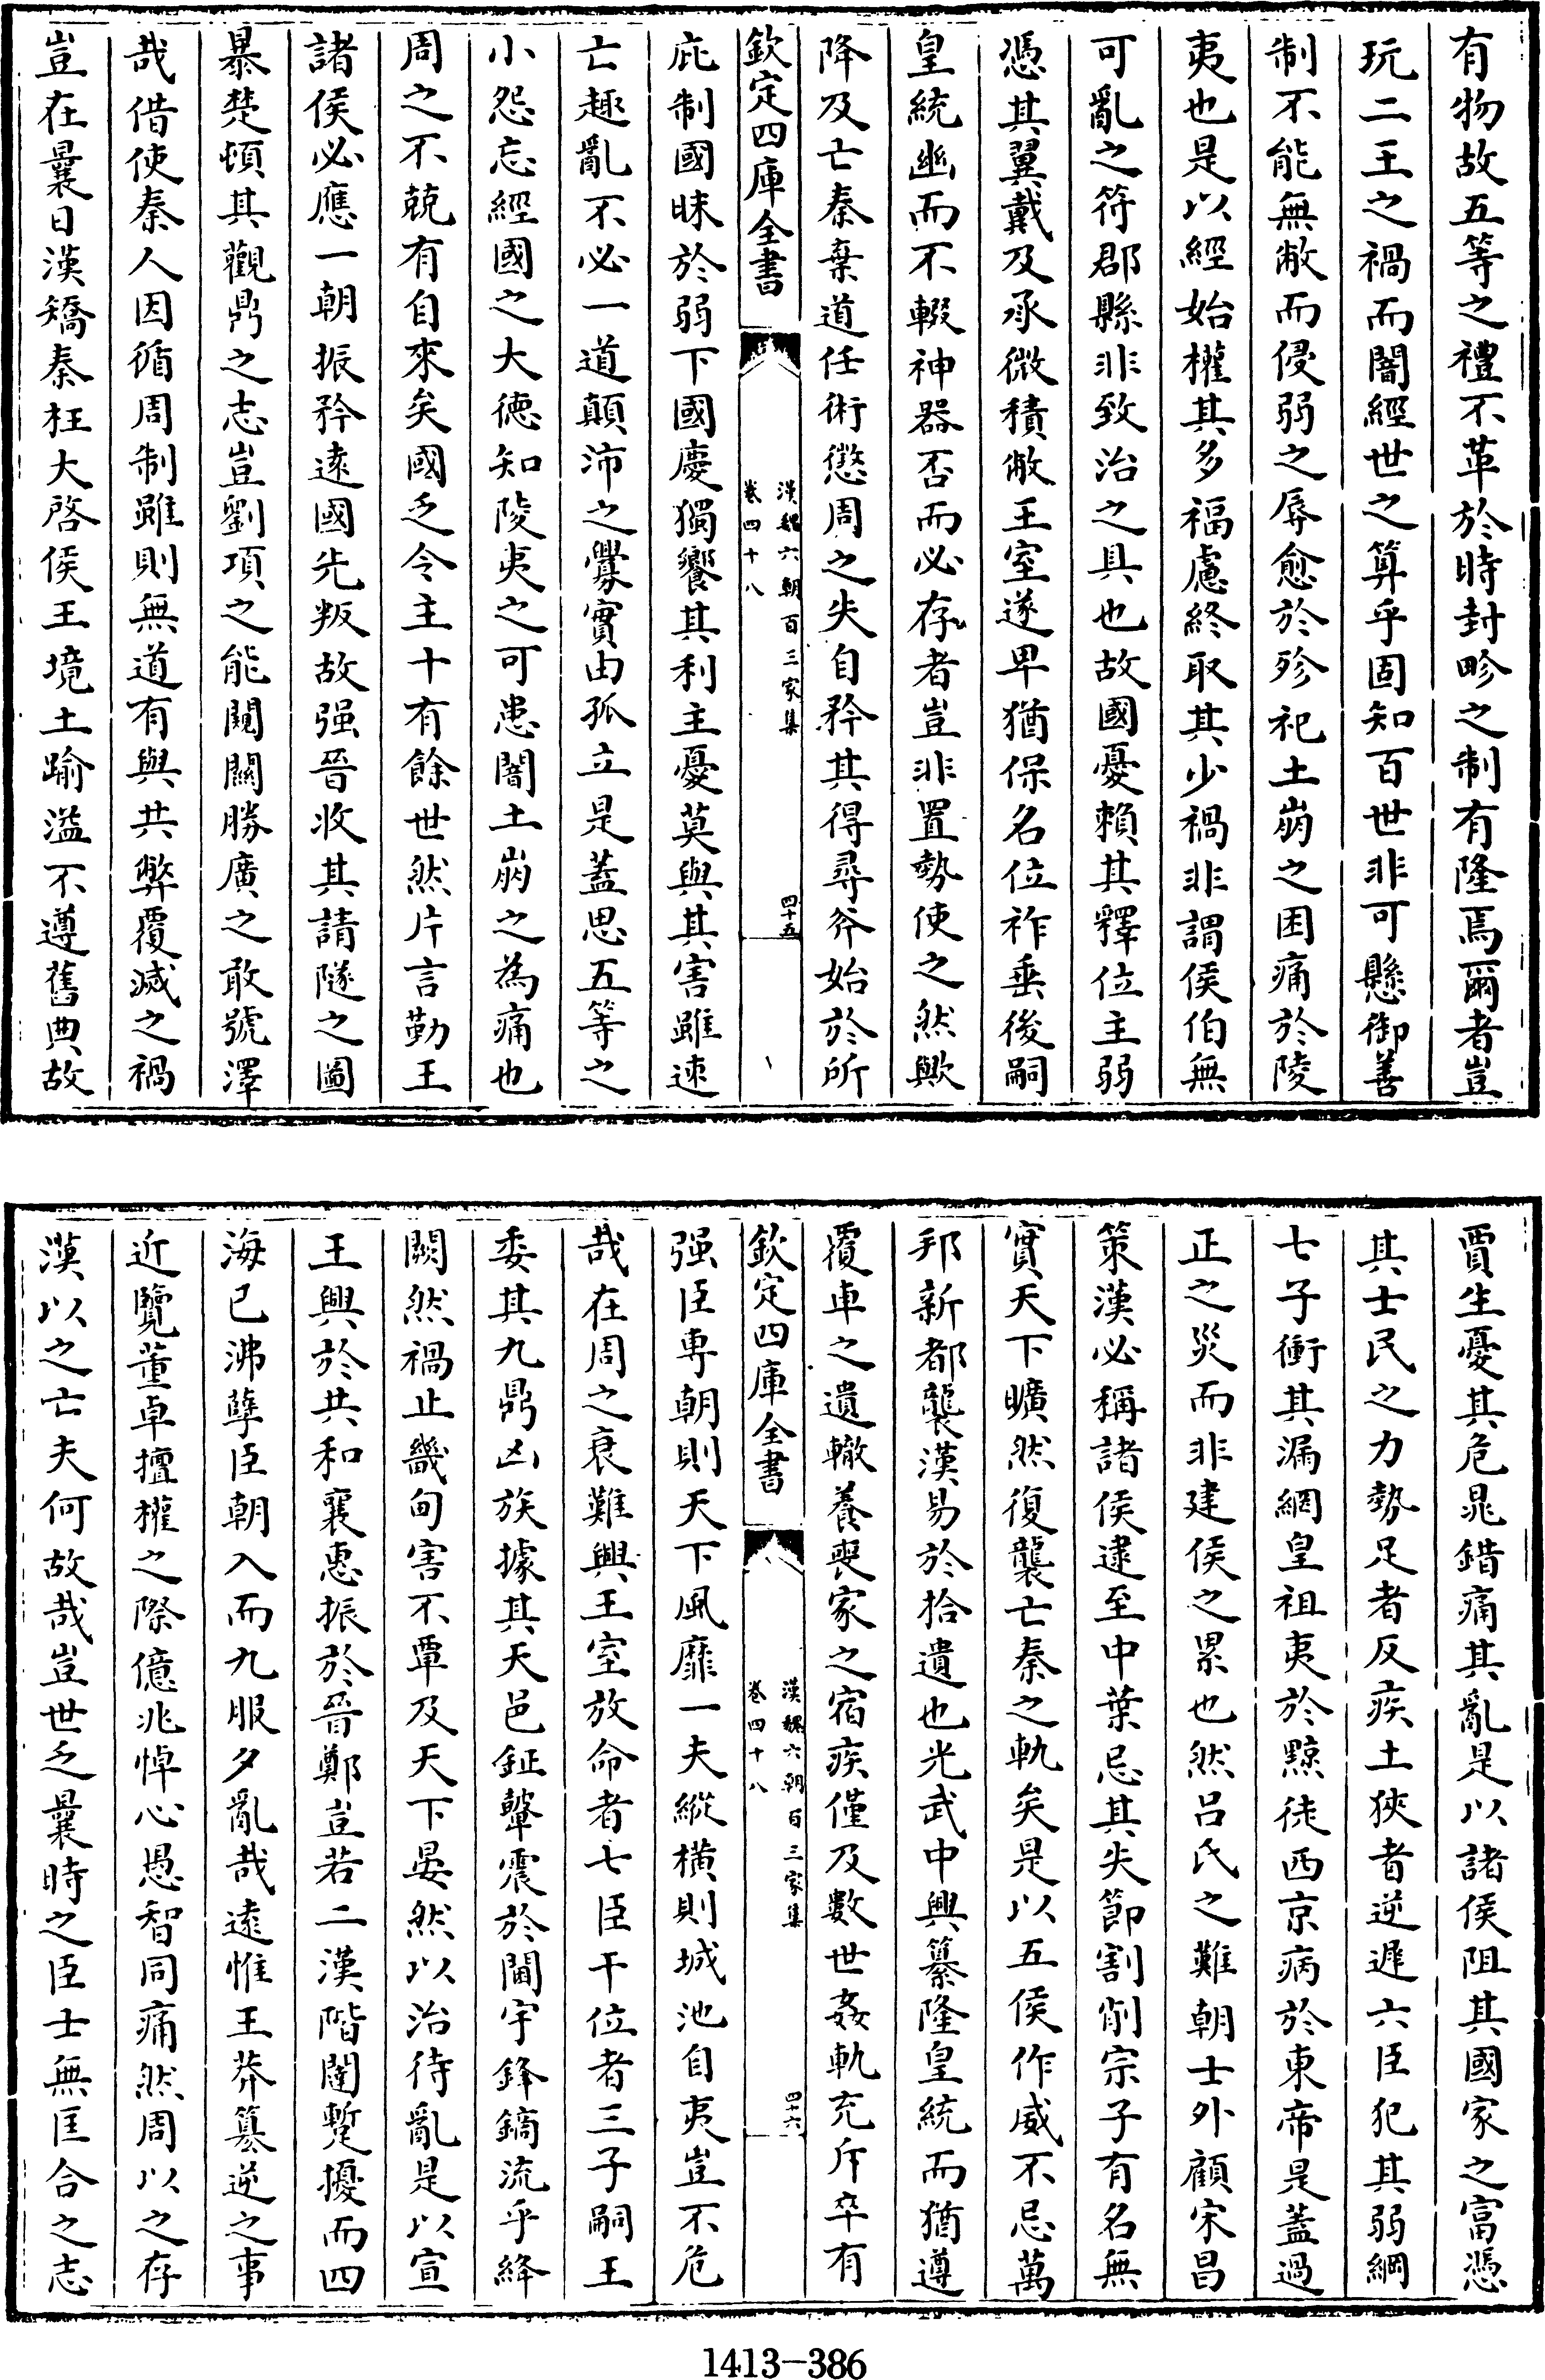 有物故五等之禮不革於時封畛之制有隆焉爾者豈
玩二王之禍而闇經世之算乎固知百世非可懸御善
制不能無敝而侵弱之辱愈於殄祀土崩之困痛於陵
夷也是以經始權其多福慮終取其少禍非謂侯伯無
可亂之符郡縣非致治之具也故國憂賴其釋位主弱
憑其翼戴及承微積敝王室遂卑猶保名位祚垂後嗣
皇統幽而不輟神器否而必存者豈非置勢使之然歟
降及亡秦棄道任術懲周之失自矜其得尋斧始於所
欽定四庫全書
漢魏六朝百三家集
卷四十八
四十五
庇制國昧於弱下國慶獨饗其利主憂莫與其害雖速
亡趣亂不必一道顛沛之釁實由孤立是蓋思五等之
小怨忘經國之大德知陵夷之可患闇土崩之為痛也
周之不兢有自來矣國乏令主十有餘世然片言勤王
諸侯必應一朝振矜遠國先叛故强晉收其請隧之圖
暴楚頓其觀鼎之志豈劉項之能闚關勝廣之敢號澤
哉借使秦人因循周制雖則無道有與共弊覆滅之禍
豈在曩日漢矯秦枉大啓侯王境土踰溢不遵舊典故
賈生憂其危晁錯痛其亂是以諸侯阻其國家之富憑
其士民之力勢足者反疾土狹者逆遲六臣犯其弱綱
七子衝其漏網皇祖夷於黥徒西京病於東帝是蓋過
正之災而非建侯之累也然呂氏之難朝士外顧宋昌
策漢必稱諸侯逮至中葉忌其失節割削宗子有名無
實天下曠然復襲亡秦之軌矣是以五侯作威不忌萬
邦新都襲漢易於拾遺也光武中興纂隆皇統而猶遵
覆車之遺轍養喪家之宿疾僅及數世姦軌充斥卒有
欽定四庫全書
漢魏六朝百三家集
卷四十八
四十六
强臣專朝則天下風靡一夫縱橫則城池自夷豈不危
哉在周之衰難興王室放命者七臣干位者三子嗣王
委其九鼎凶族據其天邑鉦鼙震於閫宇鋒鏑流乎絳
闕然禍止畿甸害不覃及天下晏然以治待亂是以宣
王興於共和襄惠振於晉鄭豈若二漢階闥蹔擾而四
海已沸孽臣朝入而九服夕亂哉遠惟王莽篡逆之事
近覽董卓擅權之際億兆悼心愚智同痛然周以之存
漢以之亡夫何故哉豈世乏曩時之臣士無匡合之志
1413-386